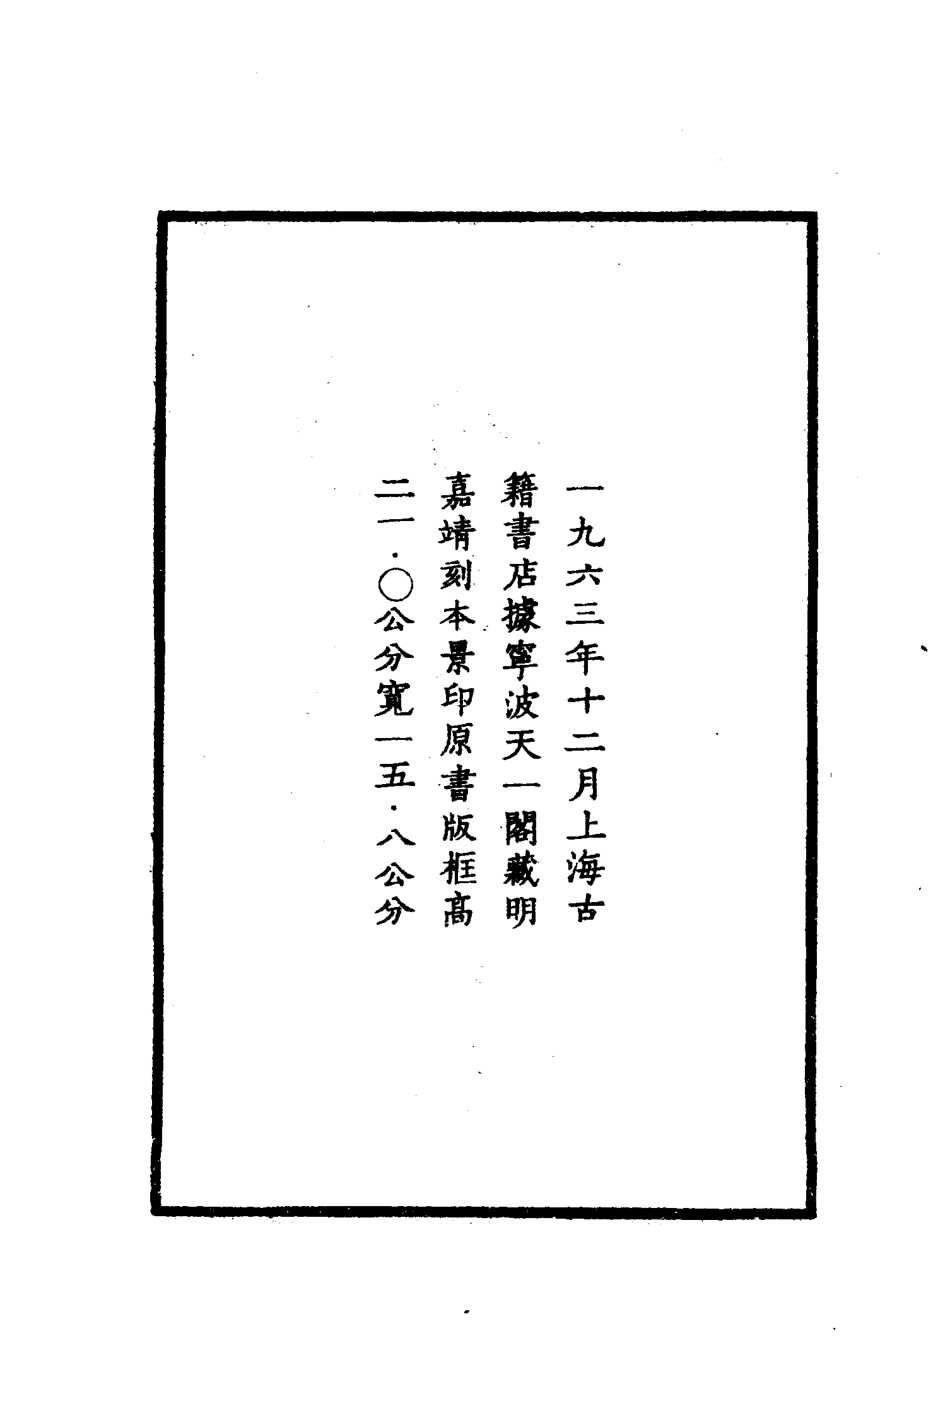 一九六三年十二月上海古
籍書店據寧波天一閣藏明
嘉靖刻本景印原書版框高
二一·〇公分寬一五·八公分